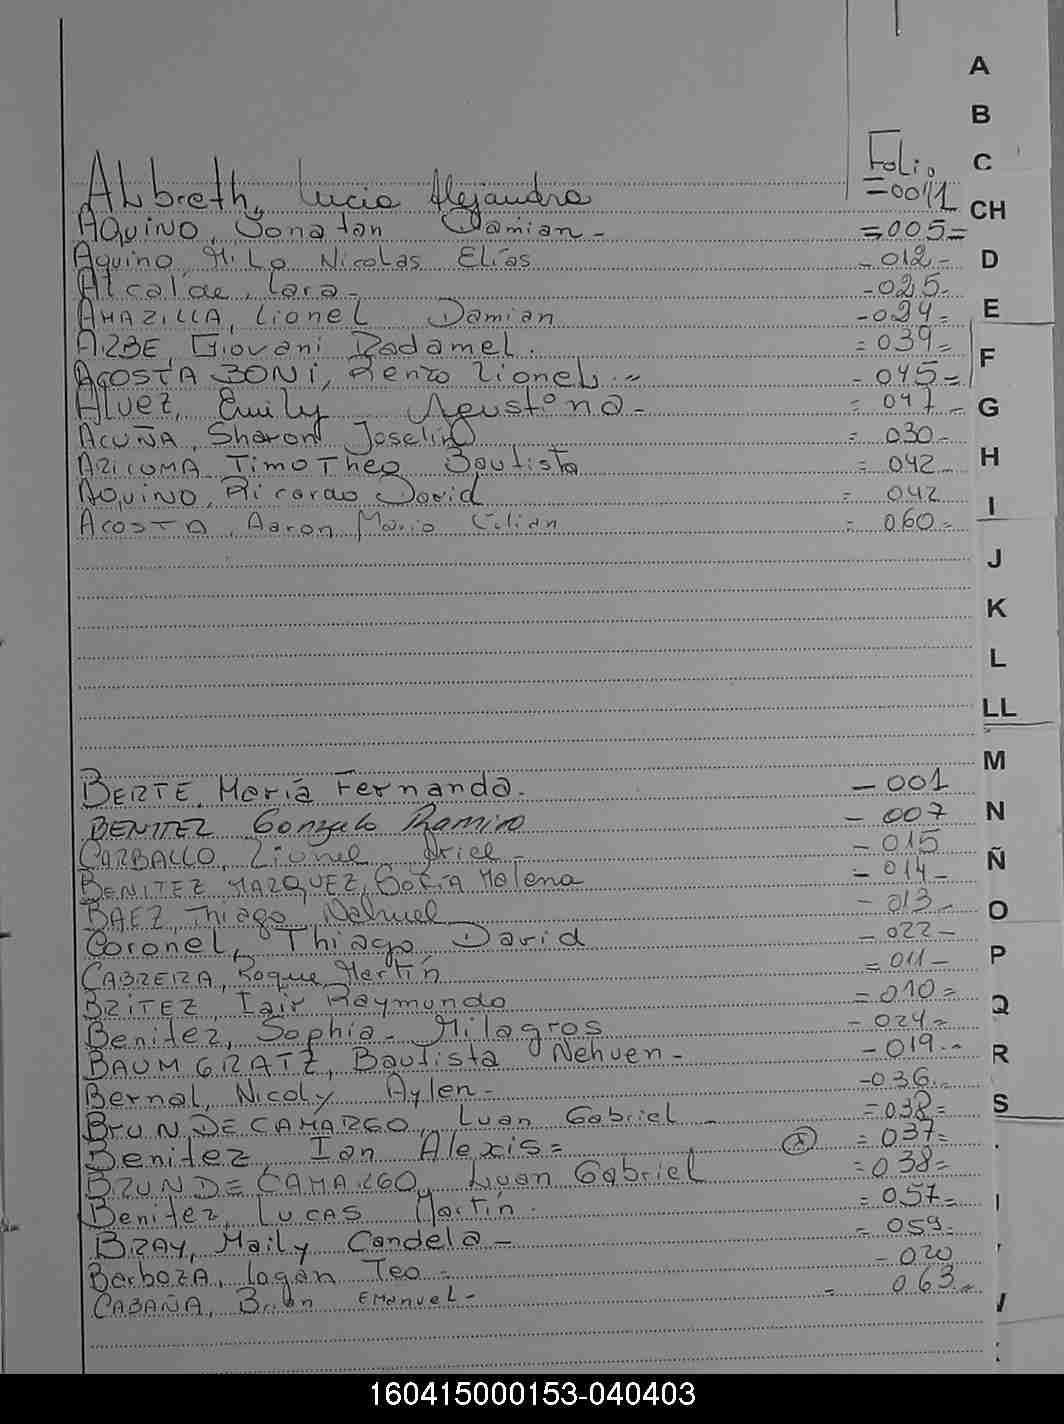 Folio
Albreth, Lucia Alejandra =0011
AQUINO, Jonatan Damian - =005=
Aquino, Milo Nicolas Elías -012-
Alcalde, Lara - -025-
AMAZILLA, Lionel Damian -029=
ARBE, Giovani Radamel. =039=
ACOSTA BONI, Renzo Lionel.= -045=
Alvez, Emily Agustina - =047-
ACUÑA, Sharon Joselin =030-
ARICOMA TimoTheo Bautista =042-
AQUINO, Ricardo David =042
ACOSTA, Aaron Mario Kilian =060=
BERTE, María Fernanda. -001
BENITEZ Gonzalo Ramiro -007
CARBALLO, Lionel Ariel - -015
BENITEZ MARQUEZ, SOFÍA Malena =014-
BAEZ, Thiago Nahuel -013-
Coronel, Thiago David -022-
CABRERA, Roque Martín =011-
BRITEZ, Iair Raymundo =010=
Benitez, Sophia - Milagros -024=
BAUMGRATZ, Bautista Nehuen - -019--
Bernal, Nicoly Aylen - -036-
BRUN DE CAMARGO, Luan Gabriel - =038=
Benitez, Ian Alexis = (x) =037=
BRUN DE CAMARGO, Luan Gabriel =038=
Benitez, LUCAS Martín. =057=
BRAY, Maily Candela - =059-
BarbozA, Logan Teo - -020
CABAÑA, Brian Emanuel - = 063-
A
B
C
CH
D
E
F
G
H
I
J
K
L
LL
M
N
Ñ
O
P
Q
R
S
160415000153-040403